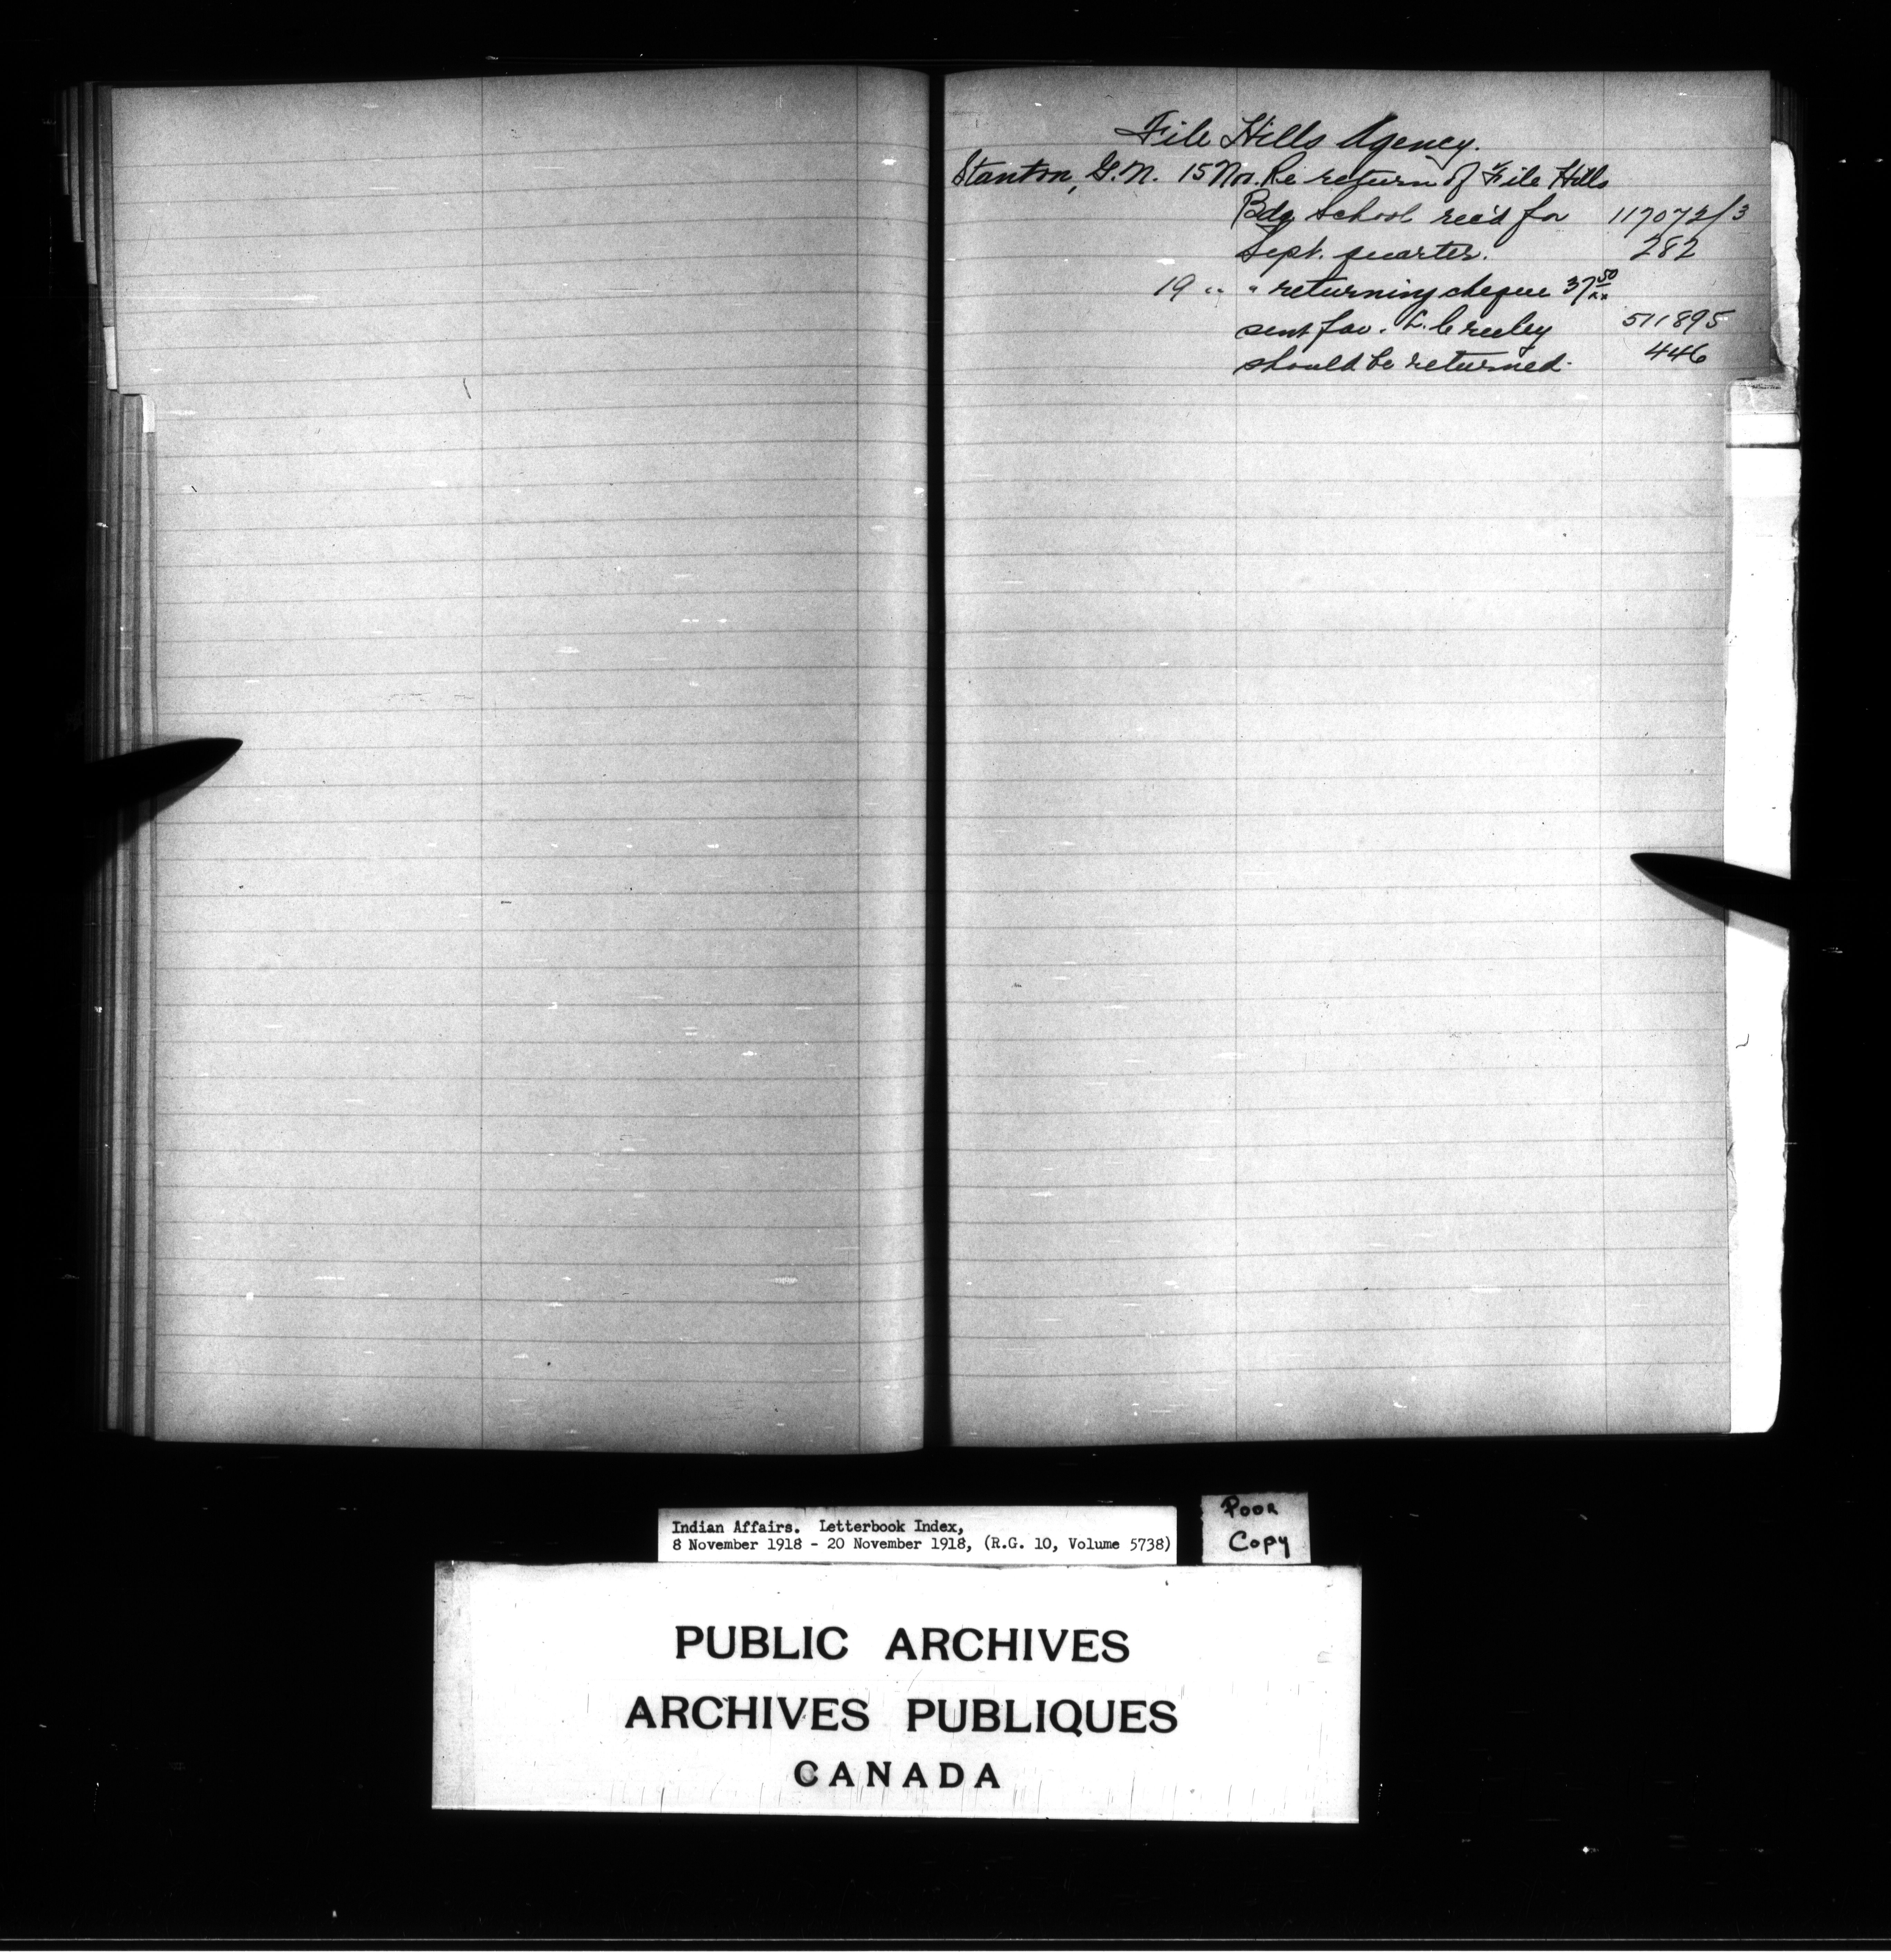 File Hills Agency.
Stanton, G.N. 15 Nov. Re return of File Hills
Bdg. School rec'd for 117072/3
Sept. quarter. 282
19 " " returning cheque 37 50/xx
sent fav. L. Creeley 511895
should be returned. 446
Indian Affairs. Letterbook Index,
8 November 1918 - 20 November 1918, (R.G. 10, Volume 5738)
POOR
Copy
PUBLIC ARCHIVES
ARCHIVES PUBLIQUES
CANADA